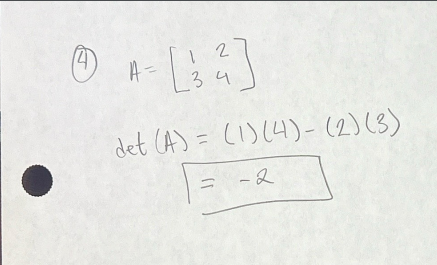 ④ A = [1 2
3 4]
det(A) = (1)(4) - (2)(3)
= -2